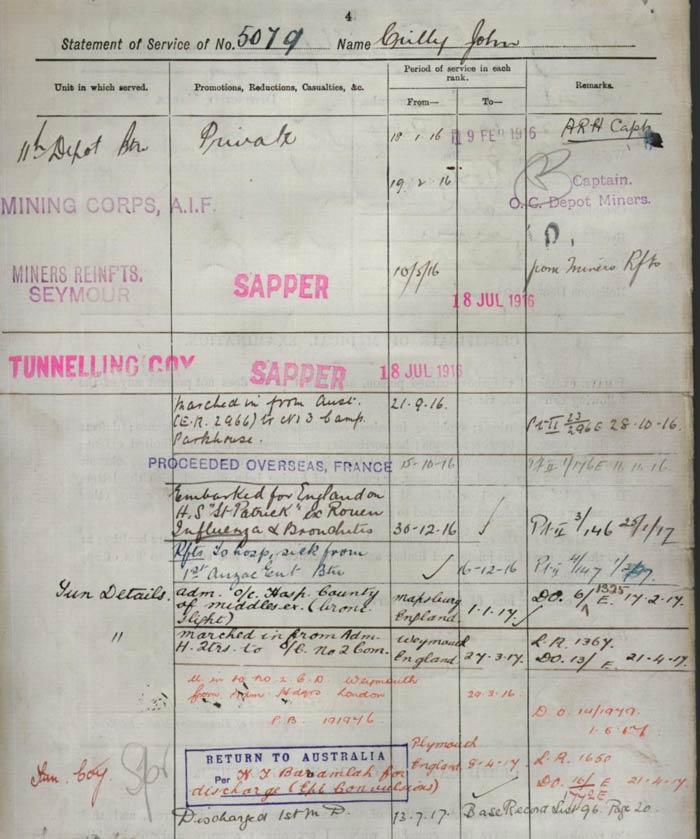 4
Statement of Service of No. 5079 Name Crilly John
Unit in which served.
Promotions, Reductions, Casualties, &c.
Period of service in each rank.
From—
To—
Remarks.
11th Depot Btn Private 18 1 16 19 FEB 1916 ARH Capt
19 2 16 Captain.
MINING CORPS, A.I.F. O. C. Depot Miners.
MINERS REINFTS. SEYMOUR SAPPER 10/5/16 18 JUL 1916 from Miners Rfts
TUNNELLING COY SAPPER 18 JUL 1916
Marched in from Aust. 21-9-16.
(E.R. 2966) to No 3 Camp
Parkhouse. Pt II 23/296E 28-10-16.
PROCEEDED OVERSEAS, FRANCE 15-10-16 11.11.16
Embarked for England on
H.S "St Patrick" ex Rouen
Influenza & Bronchitis 30-12-16 Pt II 3/146 25/1/17
Rfts To hosp, sick from
1st Anzac Ent Btn 16-12-16 Pt II 4/147
Tun Details. adm. o/c. Hosp. County
of middlesex. (
slight) England. 1-1-17. DO. 6/1325 E. 17-2-17.
" marched in from Adm Weymouth L.R. 1367.
H. 2trs. to o/c. No 2 Com. England 27-3-17. DO. 13/E. 21-4-17.
M in to No. 2 C.D. Weymouth
from Adm. Hdqrs London 29.3.16.
P.B. 191946 D.O. 14/1979.
Tun. Coy. Spr
RETURN TO AUSTRALIA Plymouth
Per H.T Baramlah for England 8-4-17 L.R. 1650
discharge (Epl Convulsions) DO. 16/E 21-4-17.
Discharged 1st M.D. 13-7-17. Base Record List 96. Page 20.